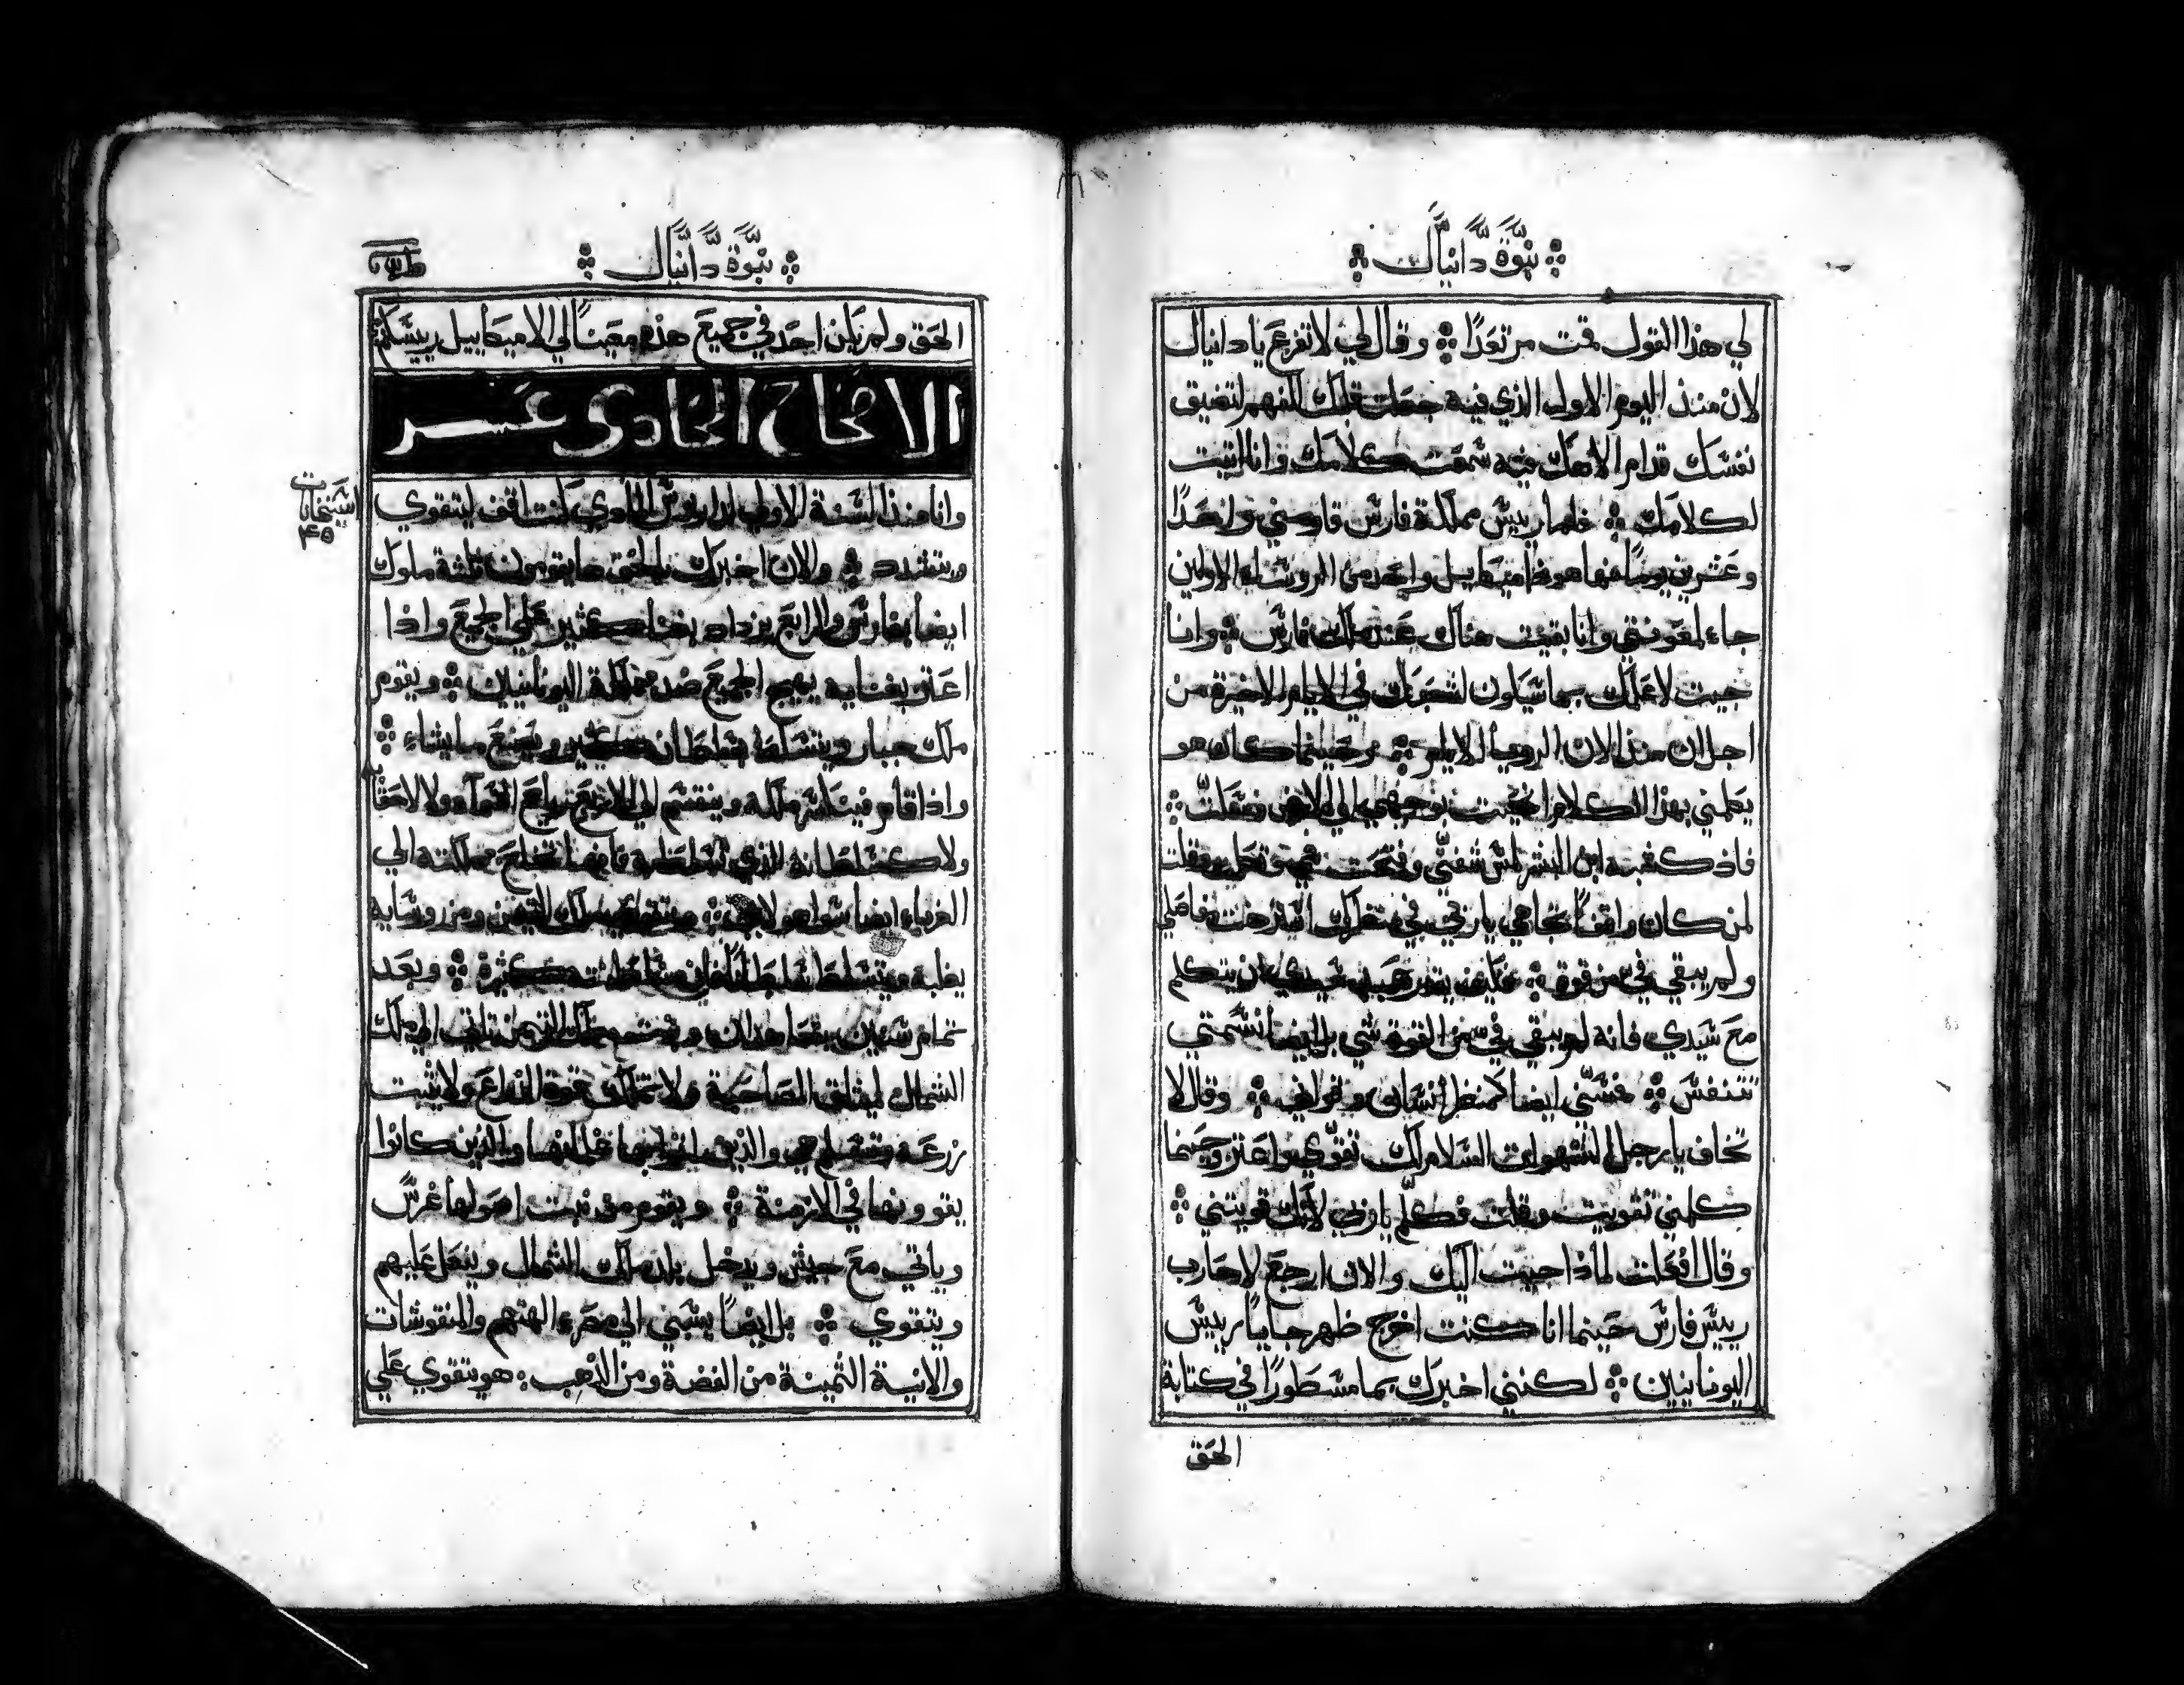 نبوة دانيال
لي هذا القول قمت مرتعدًا وقال لي لا تفزع يا دانيال
لان منذ اليوم الاول الذي فيه جعلت قلبك لتفهم لتضيق
نفسك قدام الاهك فيه سمعت كلامك وانا اتيت
لكلامك فاما رييس مملكة فارس قاومني واحدًا
وعشرين يومًا فها هوذا ميخاييل واحد من الروساء الاولين
جاء لمعونتي وانا بقيت هناك عند ملك فارس وانا
جيت لاعلمك بما سيكون لشعبك في الايام الاخيرة من
اجل ان منذ الان الرويا لايام وحينما كان هو
يعلمني بهذا الكلام انحنيت بوجهي الي الارض
فاذ كشبه ابن البشر لمس شفتي وفتحت فمي وقلت
لمن كان واقفًا تجاهي يا ربي في منظرك استرخت مفاصلي
ولم يبقي في من قوة فكيف يقدر عبد سيدي ان يتكلم
مع سيدي فانه لم يبقي في من القوة شي بل ايضا نسمتي
تتنفس فمسني ايضا كمنظر انسان وقواني وقال لا
تخاف يا رجل الشهوات السلام لك تقوي واعتز وحينما
كلمني تقويت وقلت فكلم يا ربي لانك قويتني
وقال افعلت لماذا جيت اليك والان ارجع لاحارب
رييس فارس حينما انا كنت اخرج ظهر جاييا رييس
اليونانيين لكنني اخبرك بما مسطورًا في كتابة
الحق
نبوة دانيال
الحق ولم يكن احد في جميع هذه معينًا لي الا ميخاييل رييسكم
الاصحاح الحادي عشر
وانا منذ السنة الاولي لداريوس المادي كنت اقف ليتقوي
ويتشدد والان اخبرك بالحق ها يقومون ثلثة ملوك
ايضا بفارس والرابع يزداد بغناء كثير علي الجميع واذا
اعتز بغنايه يهيج الجميع ضد مملكة اليونانيين ويقوم
ملك جبار ويتسلط بسلطان كثير ويصنع ما يشاء
واذا قام فينكسر ملكه وينقسم الي اربع رياح السماء ولا لاعقابه
ولا كسلطانه الذي تسلط به فانها تخلع مملكته الي
الغرباء ايضا سوا هولاء ويتقوي ملك التيمن ومن روسايه
يغلبه ويتسلط كثيرة وبعد
تمام سنين يتعاهدان وبنت ملك التيمن تاتي الي ملك
الشمال ليثاق المصاحبة ولا تملك قوة الذراع ولا يثبت
زرعه وتسلم هي والذين اتوا بها فتيانها والذين كانوا
يقوونها في الازمنة ويقوم من نبت اصولها غرس
وياتي مع جيش ويدخل بلد ملك الشمال وينعل عليهم
ويتقوي بل ايضًا يسبي الي مصر الهتهم والمنقوشات
والانية الثمينة من الفضة ومن الذهب هو يتقوي علي